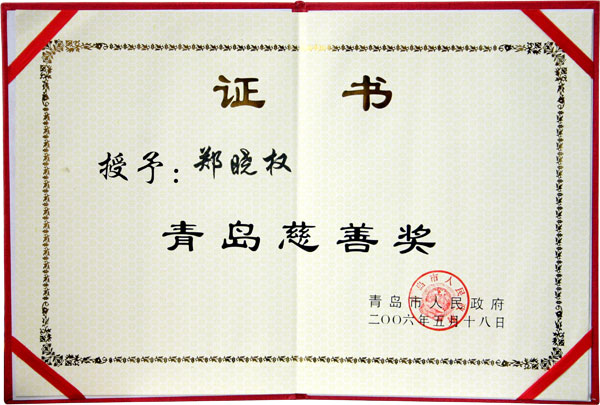 证书
授予：郑晓权
青岛慈善奖
青岛市人民政府
二〇〇六年五月十八日